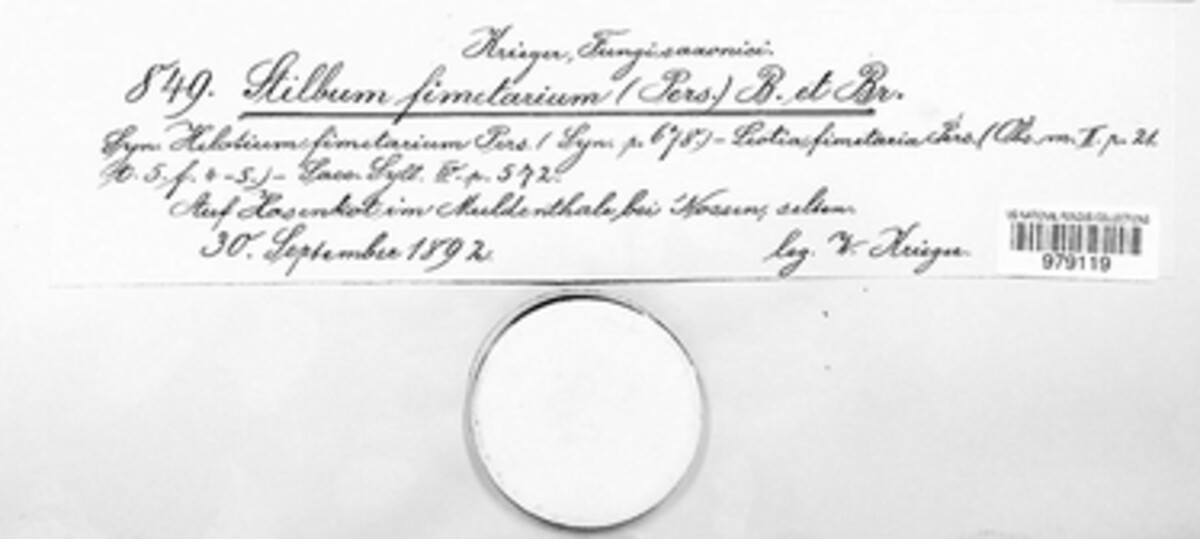 Krieger, Fungi saxonici.
849. Stilbum fimetarium (Pers.) B. et Br.
Syn. Helotium fimetarium Pers. (Syn. p. 678.) - Leotia fimetaria Pers. (Obs. m. II. p. 21.
t. 5. f. 4-5.) - Sacc. Syll. IV. p. 572.
Auf Hasenkot im Muldenthale bei Nossen, selten.
30. September 1892.
leg. W. Krieger.
US NATIONAL FUNGUS COLLECTIONS
979119